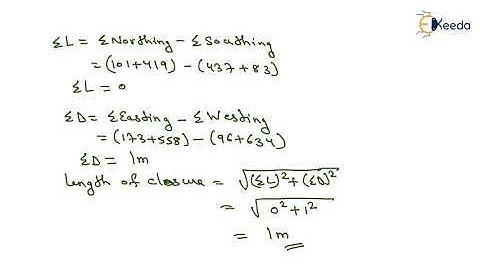 Ekeeda
ΣL = ΣNorthing - ΣSouthing
= (101+419) - (437+83)
ΣL = 0
ΣD = ΣEasting - ΣWesting
= (173+558) - (96+634)
ΣD = 1m
length of closure = √(ΣL)²+(ΣD)²
= √0²+1²
= 1m